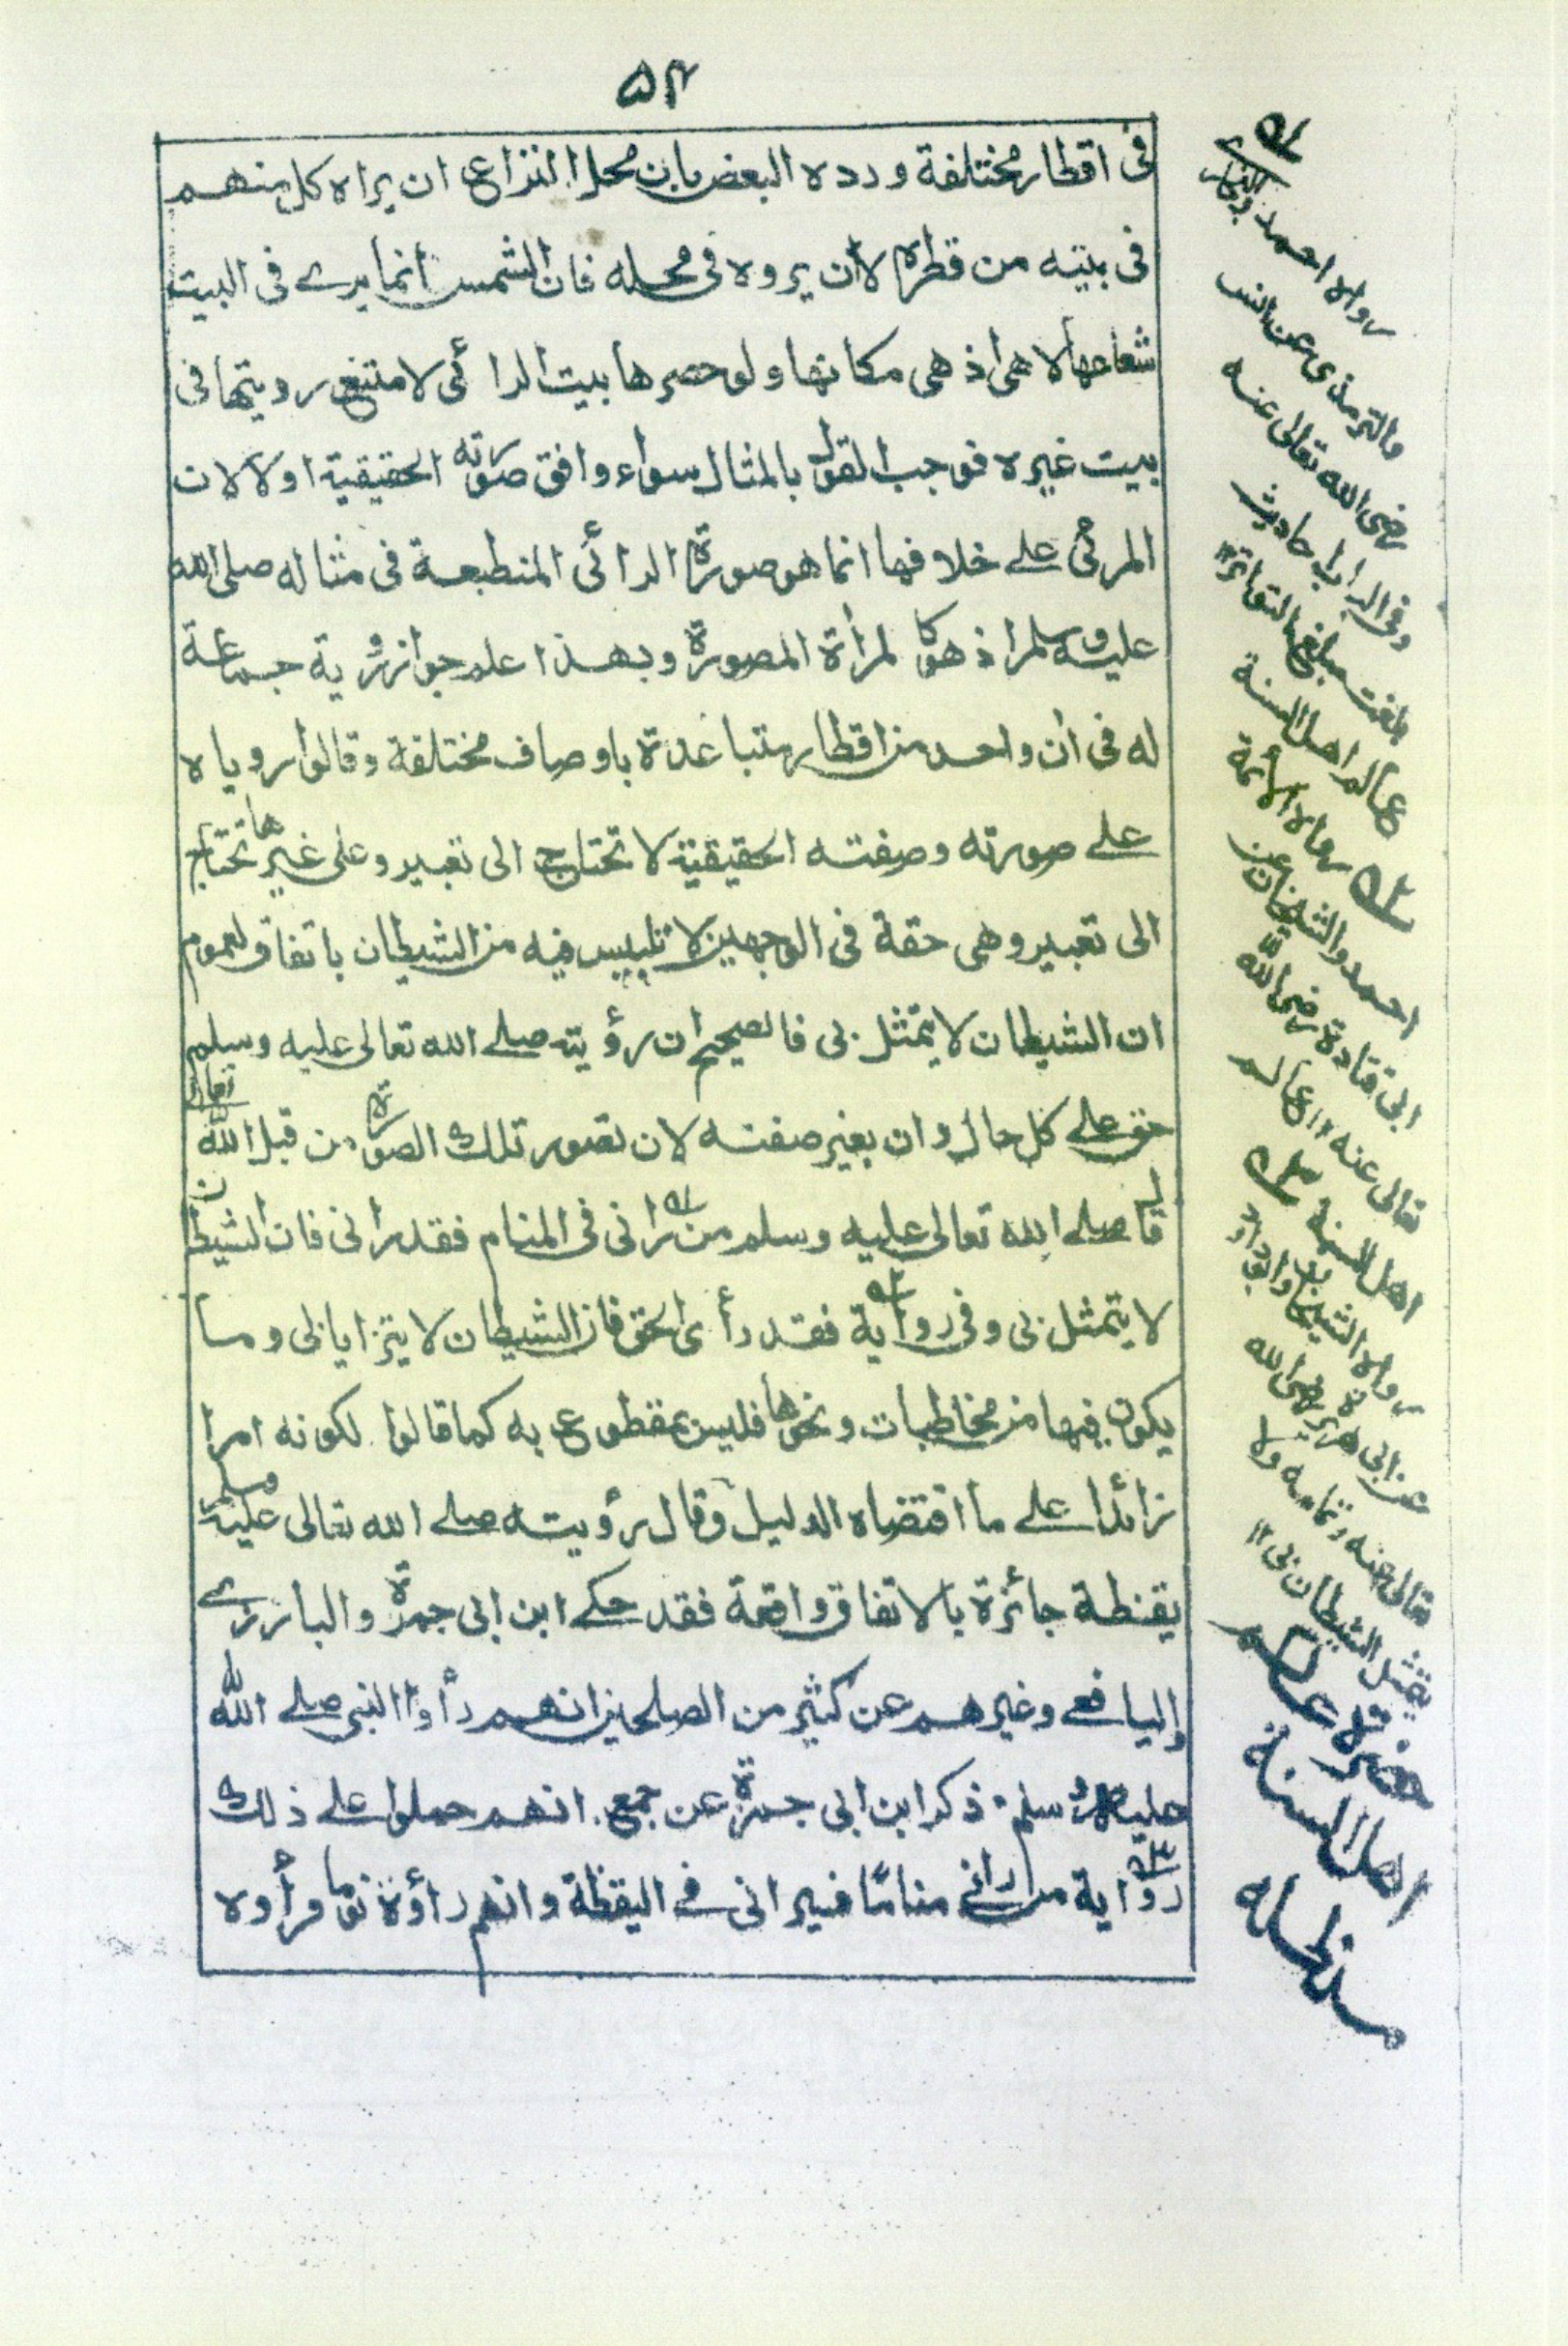 ۵۴
فى اقطار مختلفة ورده البعض بان محل النزاع ان يراه كل منهم
فى بيته من قطره لا ان يروه فى محله فان الشمس انما يرے فى البيت
شعاعها لا هى اذ هى مكانها ولو حصرها بيت الرائى لامتنع رويتها فى
بيت غيره فوجب القول بالمثال سواء وافق صورته الحقيقية اولا لان
المرئى علے خلافها انما هو صورة الرائى المنطبعة فى مثاله صلى الله
عليه وسلم اذ هو كالمرأة المصورة وبهذا علم جواز رؤية جماعة
له فى ان واحد من اقطار متباعدة باوصاف مختلفة وقالوا روياه
علے صورته وصفته الحقيقية لا تحتاج الى تعبير وعلى غيرها تحتاج
الى تعبير وهى حقة فى الوجهين لا تلبيس فيه من الشيطان باتفاق لعموم
ان الشيطان لا يتمثل بى فالصحيح ان رؤيته صلے الله تعالى عليه وسلم
حق علے كل حال وان بغير صفته لان تصور تلك الصورة من قبل الله تعالى
قال صلے الله تعالى عليه وسلم من رانى فى المنام فقد رانى فان الشيطان
لا يتمثل بى وفى رواية فقد رأى الحق فان الشيطان لا يتزايا بى وما
يكون فيها من مخاطبات ونحوها فليس بمقطوع به كما قالوا لكونه امرا
زائدا علے ما اقتضاه الدليل وقال رؤيته صلے الله تعالى عليه وسلم
يقظة جائزة بالاتفاق واقعة فقد حكے ابن ابى جمرة والبارزے
واليافعے وغيرهم عن كثير من الصلحين انهم رأوا النبى صلے الله
عليه وسلم ذكر ابن ابى جمرة عن جمع انهم حملوا علے ذلك
رواية من رانى مناما فيرانى فے اليقظة وانهم راؤه نوما فرأوه
رواه احمد والبخارى
والترمذى عن انس
رضى الله تعالى عنه
وفى الباب احاديث
بلغت مبلغ التواتر ١٢
عالم اهل السنة
رواه الائمة
احمد والشيخان عن
ابى قتادة رضى الله
تعالى عنه ١٢ عالم
اهل السنة
رواه الشيخان وابوداود
عن ابى هريرة رضى الله
تعالى عنه وتمامه ولا
يتمثل الشيطان بى ١٢
حضرة عالم
اهل السنة
مدظله